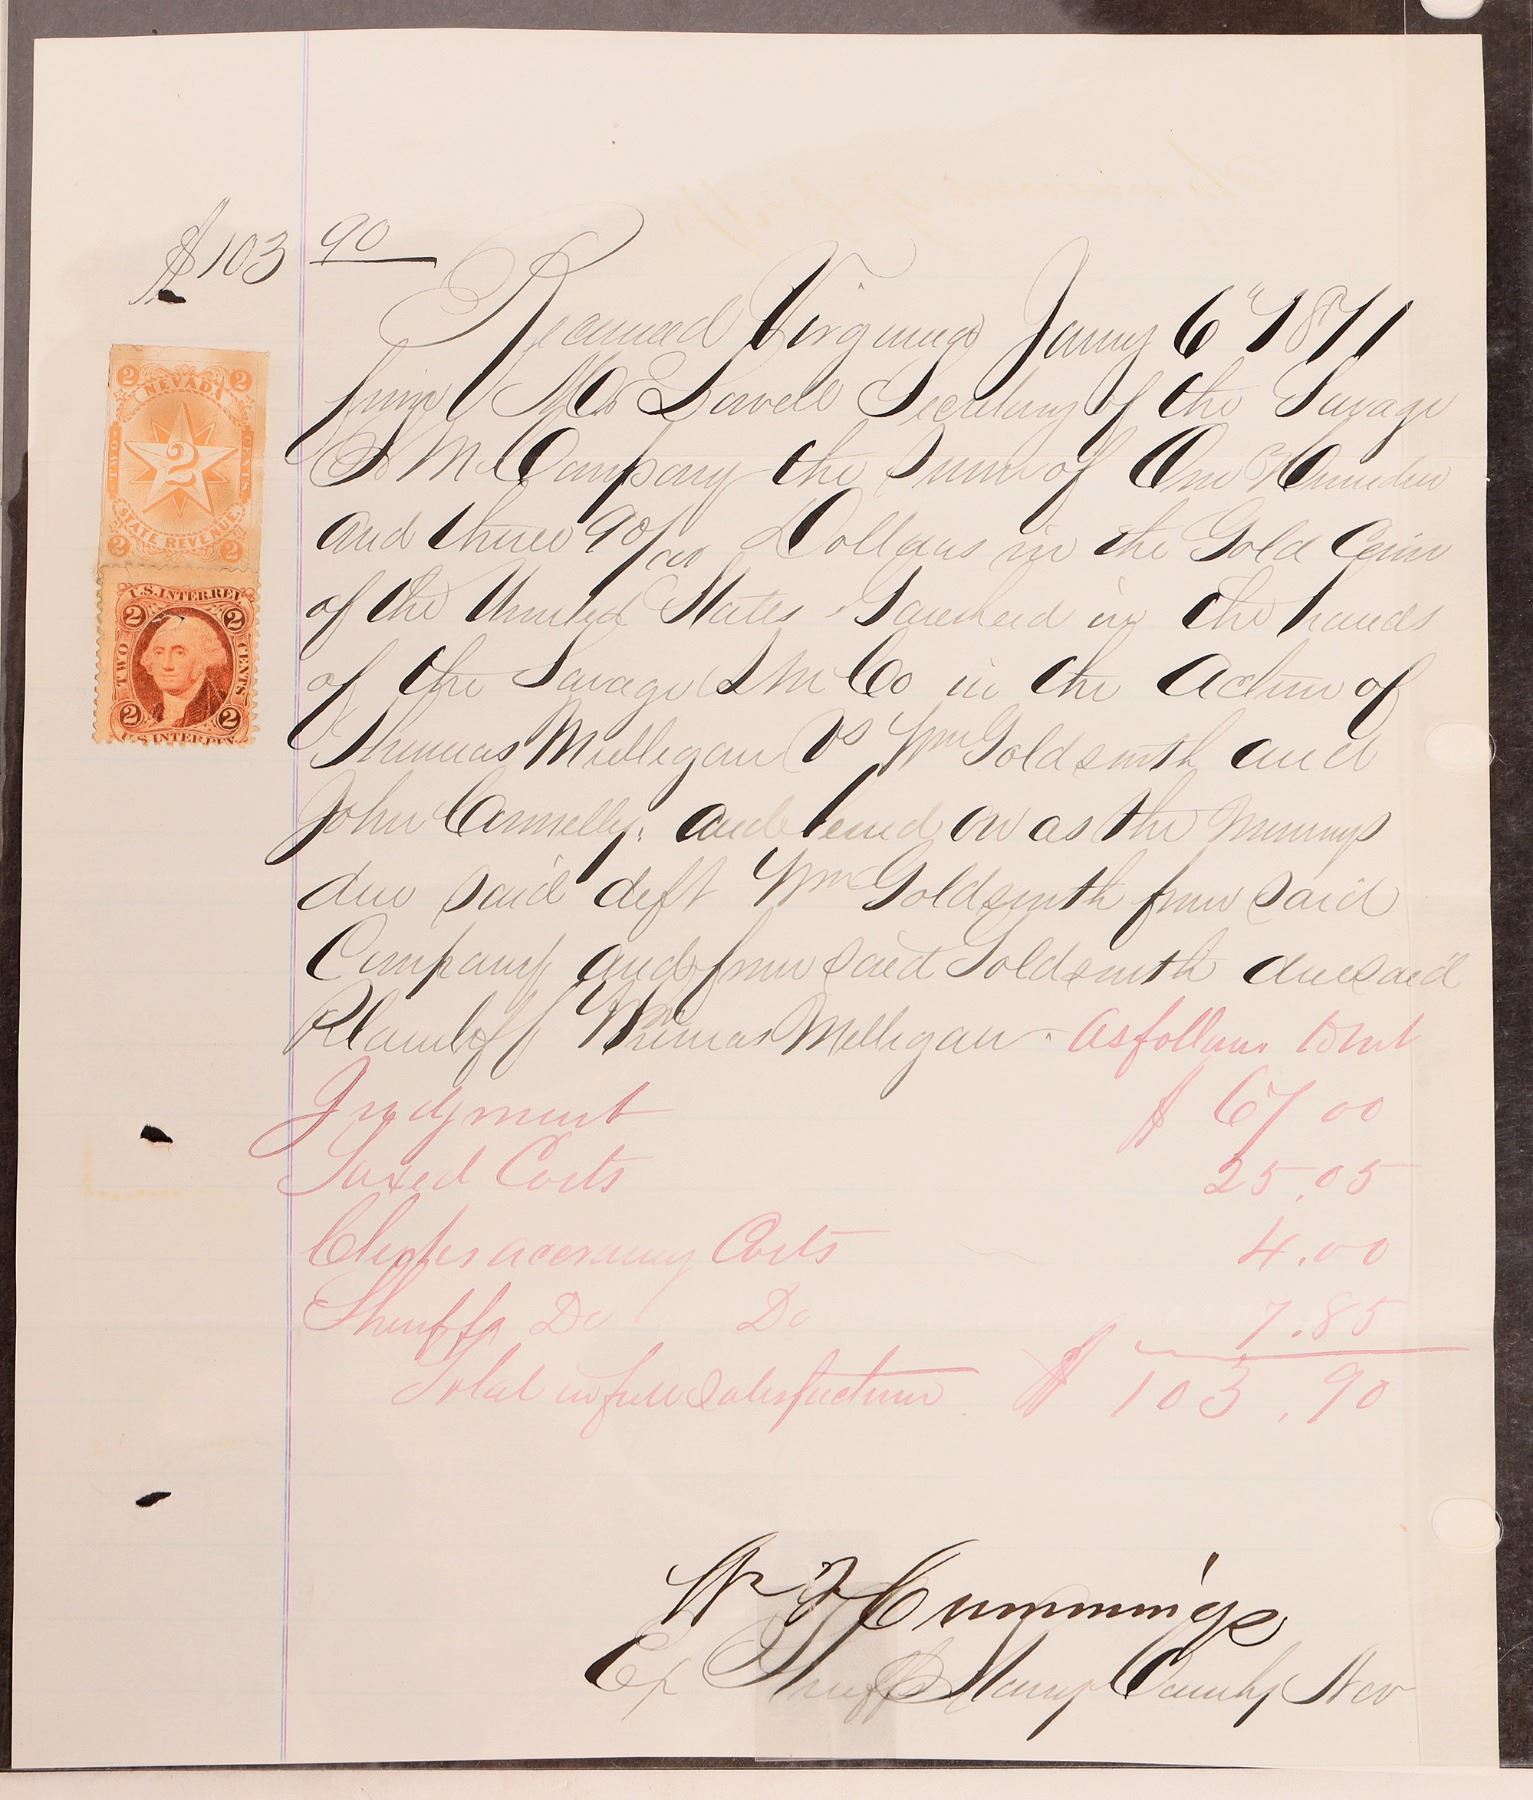 $103 90
Received Virginia Jany 6" 1871
from Secretary of the Savage
S M Company the Sum of One Hundred
and three 90/100 Dollars in the Gold Coin
of the United States Garnheid in the hands
of the Savage S M Co in the Action of
Thomas Milligan vs Wm Goldsmith and
John Connelly, and levied on as the moneys
due said deft Wm Goldsmith from said
Company and from said Goldsmith due said
Plaintiff Thomas Milligan - as follows towit
Judgment $ 67 00
Taxed Costs 25.05
Clerks accruing Costs 4.00
Sheriffs Do Do 7.85
Total in full Satisfaction $ 103.90
Cummings
Ex Sheriff Storey County Nev
2 NEVADA 2
TWO 2 CENTS
STATE REVENUE
2 2
U.S. INTER. REV.
2 2
TWO CENTS
2 2
U.S. INTER. REV.